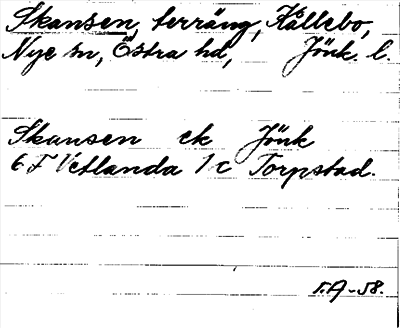 Skansen, terräng, Källebo,
Nye sn, Östra hd, Jönk. l.
Skansen ek Jönk
6 F Vetlanda 1 c Torpstad.
I.A -58.